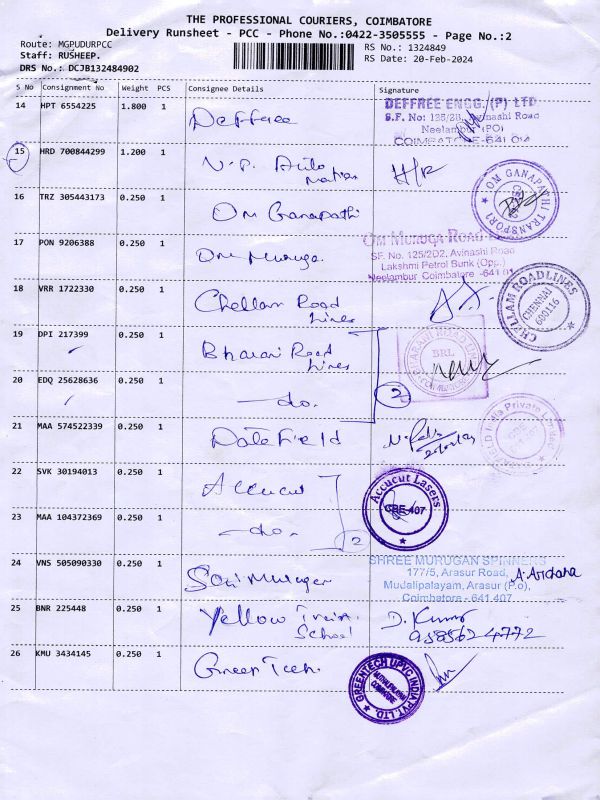 THE PROFESSIONAL COURIERS, COIMBATORE
Delivery Runsheet - PCC - Phone No.:0422-3505555 - Page No.:2
Route: MGPUDURPCC
Staff: RUSHEEP.
DRS No.: DCJB132484902
RS No.: 1324849
RS Date: 20-Feb-2024
S No Consignment No Weight PCS Consignee Details Signature
14 HPT 6554225 1.800 1 Deffree
DEFFREE ENGG.(P) LTD
S.F. No: 125/2B, Avinashi Road
Neelambur (PO)
COIMBATORE-641 014
15 HRD 700844299 1.200 1 N.P. Auto H/R
16 TRZ 305443173 0.250 1 Om Ganapathi
OM GANAPATHI TRANSPORT
17 PON 9206388 0.250 1 Om Muruga
OM MURUGA ROAD
SF. No. 125/2D2, Avinashi Road
Lakshmi Petrol Bunk (Opp.)
Neelambur Coimbatore -641 01
18 VRR 1722330 0.250 1 Chellam Road
Lines
CHELLAM ROADLINES
CHENNAI
600116
19 DPI 217399 0.250 1 Bharani Road
Lines
BRL
20 EDQ 25628636 0.250 1 -do.
2
21 MAA 574522339 0.250 1 Datafield
22 SVK 30194013 0.250 1 Accucut
Accucut Lasers
CBE-407
23 MAA 104372369 0.250 1 -do.
2
24 VNS 505090330 0.250 1 Sri Murugan
SHREE MURUGAN SPINNERS
177/5, Arasur Road,
Mudalipalayam, Arasur (P.o),
Coimbatore - 641 407
A. Archana
25 BNR 225448 0.250 1 Yellow Train
School
D. Kumar
9585624772
26 KMU 3434145 0.250 1 Green Tech.
GREENTECH UPVC INDIA PVT. LTD.